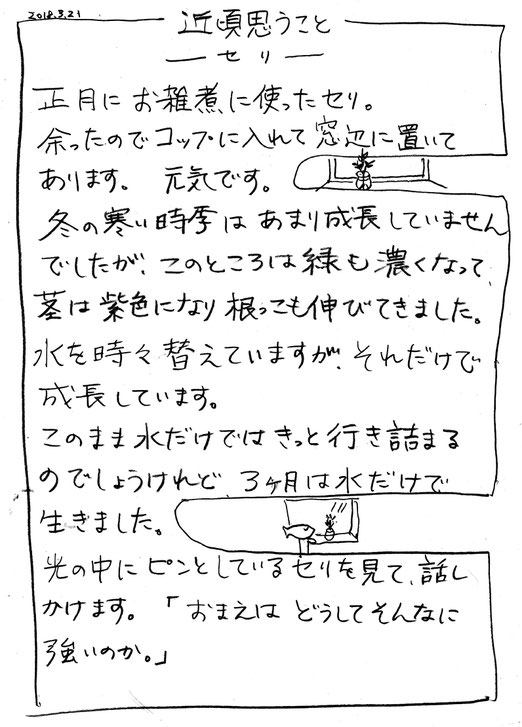 2018.3.21
近頃思うこと
― セリ ―
正月に お雑煮に使ったセリ。
余ったのでコップに入れて 窓辺に置いて
あります。 元気です。
冬の寒い時季は あまり成長していません
でしたが、このところは 緑も 濃くなって、
茎は 紫色になり 根っこも 伸びてきました。
水を時々 替えていますが、それだけで
成長しています。
このまま 水だけでは きっと 行き詰まる
のでしょうけれど、3ヶ月は水だけで
生きました。
光の中に ピンとしている セリを見て、話し
かけます。「おまえは どうしてそんなに
強いのか。」